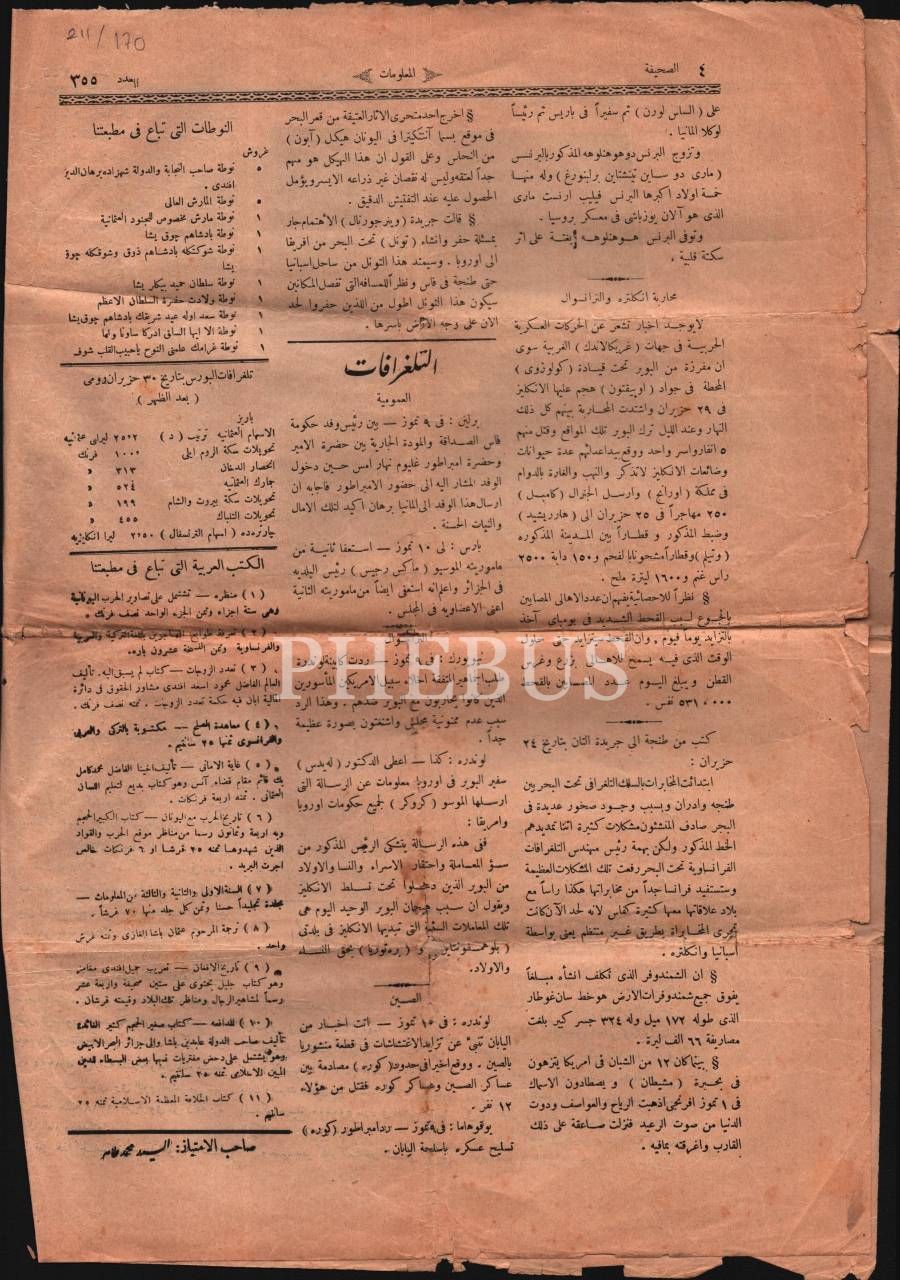 211/170
٤ الصحيفة
المعلومات
العدد ٣٥٥
على (الساس لورن) ثم سفيراً فى باريس ثم رئيساً
لوكلا المانيا .
وتزوج البرنس دوهوهنلوهه المذكور بالبرنس
(مارى دو ساين تينشتاين برلنبورغ) وله منها
خمسة اولاد اكبرها البرنس فيليب ارنست مارى
الذى هو آلان يوزباشى فى معسكر بروسيا .
وتوفى البرنس هوهنلوهه بغتة على اثر
سكتة قلبية .
محاربة انكلتره والترانسوال
لايوجد اخبار تشعر عن الحركات العسكرية
الحربية فى جهات (غريكالاند) الغربية سوى
ان مفرزة من البوير تحت قيادة (كولوزوى)
المحطة فى جواد (اوبيفتون) هجم عليها الانكليز
فى ٢٩ حزيران واشتدت المحاربة بينهم كل ذلك
النهار وعند الليل ترك البوير تلك المواقع وقتل منهم
٥ انفار واسر واحد ووقع بيد اعدائهم عدة حيوانات
وضائعات الانكليز لاتذكر والنهب والغارة بالدوام
فى مملكة (اورانج) وارسل الجنرال (كامبل)
٢٥٠ مهاجراً فى ٢٥ حزيران الى (هارريشيد)
وضبط المذكور و قطاراً بين المدينة المذكوره
(وتيلم) وقطاراً مشحونابا لفحم و ١٥٠ دابة ٢٥٠٠
راس غنم و ١٦٠٠ ليترة ملح .
§ نظراً للاحصائية نفهم ان عدد الاهالى المصابين
بالجوع لسبب القحط الشديد فى بومباى آخذ
بالتزايد يوماً فيوم . وان القحط سيتزايد حتى حلول
الوقت الذى فيه يسمح للاهالى زرع وغرس
القطن ويبلغ اليوم عدد المصابين بالقحط
٥٣١,٠٠٠ نفس .
كتب من طنجة الى جريدة التان بتاريخ ٢٤
حزيران :
ابتدائت المخابرات بالسلك التلغرافى تحت البحر بين
طنجه وادران وبسبب وجود صخور عديدة فى
البحر صادف المفتشون مشكلات كثيرة اثنا تمديدهم
الخط المذكور ولكن بهمة رئيس مهندس التلغرافات
الفرانساوية تحت البحر رفعت تلك المشكلات العظيمة
وستستفيد فرانسا جداً من مخابراتها هكذا راساً مع
بلاد علاقاتها معها كثيرة كفاس لانه لحد الآن كانت
تجرى المخابراة بطريق غير منتظم يعنى بواسطة
أسبانيا وانكلتره .
§ ان الشمندوفر الذى تكلف انشأه مبلغاً
يفوق جميع شمندوفرات الارض هو خط سان غوطار
الذى طوله ١٧٢ ميل وله ٣٢٤ جسر كبير بلغت
مصاريفة ٦٦ الف ليرة .
§ بينما كان ١٢ من الشبان فى امريكا يتنزهون
فى بحيرة (مشيطان) و يصطادون الاسماك
فى ١ تموز افرنجى اذهبت الرياح والعواسف ودوت
الدنيا من صوت الرعيد فنزلت صاعقة على ذلك
القارب واغرقته بمافيه .
§ اخرج احد متحرى الاثار العتيقة من قعر البحر
فى موقع بسما آنتيكيترا فى اليونان هيكل (آبون)
من النحاس وعلى القول ان هذا الهيكل هو مهم
جداً لعتقه وليس له نقصان غير ذراعه الايسر ويؤمل
الحصول عليه عند التفتيش الدقيق .
§ قالت جريدة (وينر جورنال) الاهتمام جار
بمسئلة حفر وانشاء (تونل) تحت البحر من افريقا
الى اوروبا . وسيمتد هذا التونل من ساحل اسبانيا
حتى طنجة فى فاس ونظراً للمسافه التى تفصل المكانين
سيكون هذا التونل اطول من اللذين حفروا لحد
الان على وجه الارض باسرها .
التلغرافات
العمومية
برلين : فى ٩ تموز — بين رئيس وفد حكومة
فاس الصداقة والمودة الجارية بين حضرة الامير
وحضرة امبراطور غليوم نهار امس حين دخول
الوفد المشار اليه الى حضور الامبراطور فاجابه ان
ارسال هذا الوفد الى المانيا برهان اكيد لتلك الامال
والنيات الحسنة .
بارس : لى ١٠ تموز — استعفا ثانية من
ماموريته الموسيو (ماكس رجيس) رئيس البلديه
فى الجزائر واعلم انه استعفى ايضاً من ماموريته الثانية
اعنى الاعضاويه فى المجلس .
نيويورك : فى ٩ تموز — ردت كابينة لوندرة
طلب الجماهير المتفقة اخلاء سبيل الامريكيين المأسورين
الذين كانوا يحاربون مع البوير ضدهم . وهذا الرد
سبب عدم ممنونية محليل واشنغتون بصورة عظيمة
جداً .
لوندره : كذا — اعطى الدكتور (له يدس)
سفير البوير فى اوروبا معلومات عن الرسالة التى
ارسلها الموسو (كروكر) لجميع حكومات اوروبا
وامريقا :
فقى هذه الرسالة يتشكى الرئيس المذكور من
سؤ المعاملة واحتقار الاسراء والنسا والاولاد
من البوير الذين دخلوا تحت تسلط الانكليز
ويقول ان سبب هيجان البوير الوحيد اليوم هى
تلك المعاملات السيئة التى تبديها الانكليز فى بلدتى
(بلوهمفونتاين) و (پرەتوريا) بحق النساء
والاولاد .
الصين
لوندره : فى ١٥ تموز — اتت اخبار من
اليابان تنبئ عن تزايد الاغتشاشات فى قطعة منشوريا
بالصين . ووقع اخيراً فى حدود (كوره) مصادمة بين
عساكر الصين وعساكر كوره فقتل من هؤلاء
١٢ نفر .
يوقوهاما : فى ٩ تموز — رد امبراطور (كوره)
تسليح عسكره باسلحة اليابان .
النوطات التى تباع فى مطبعتنا
غروش
٥ نوطة صاحب النجابة والدولة شهزاده برهان الدين
افندى .
٥ نوطة المارش العالى
١ نوطة مارش مخصوص للجنود العثمانية
١ نوطة بادشاهم چوق يشا
١ نوطة شوكتكله بادشاهم ذوق وشوقكله چوق
يشا
١ نوطة سلطان حميد بيكلر يشا
١ نوطة ولادت حضرة السلطان الاعظم
١ نوطة سعد اوله عيد شريفك بادشاهم چوق يشا
١ نوطة الا ايها الساقى ادركا ساونا ولها
١ نوطة غرامك علمنى النوح ياحبيب القلب شوف
تلغرافات البورس بتاريخ ٣٠ حزيران رومى
(بعد الظهر)
باريز
الاسهام العثمانيه ترتيب (د) ٢٥٠٢ ليراى عثمانيه
تحويلات سكة الروم ايلى ١٠٠٠ فرنك
انحصار الدخان ٣١٣ »
جارك العثمانيه ٥٢٤ »
تحويلات سكة بيروت والشام ١٩٩ »
تحويلات التنباك ٤٥٥ »
چارترده (اسهام الترنسفال) ٢٥٥٠ ليرا انكليزيه
الكتب العربية التى تباع فى مطبعتنا
(١) منظره — تشتمل على تصاوير الحرب اليونانية
وهى ستة اجزاء وثمن الجزء الواحد نصف فرنك .
(٢) تعرفة طوابع المهاجرين باللغة التركية والعربية
والفرنساوية وثمن النسخة عشرون باره .
(٣) تعدد الزوجات — كتاب لم يسبق اليه . تأليف
العالم الفاضل محمود اسعد افندى مشاور الحقوق فى دائرة
المالية ابان فيه حكمة تعدد الزوجات . ثمنه نصف فرنك .
(٤) معاهدة الصلح — مكتوبة بالتركى والعربى
والفرانسوى ثمنها ٢٥ سانتيم .
(٥) غاية الامانى — تأليف اخينا الفاضل محمد كامل
بك قائم مقام قضاء آنس وهو كتاب بديع لتعليم اللسان
العثمانى . ثمنه اربعة فرنكات .
(٦) تاريخ الحرب مع اليونان — كتاب الكبير الحجم
وبه اربعة وثمانون رسما من مناظر موقع الحرب والقواد
الذين شهدوها ثمنه ٢٥ قرشا او ٦ فرنكات خالص
اجرت البريد .
(٧) السنة الاولى والثانية والثالثة من المعلومات —
مجلدة تجليداً حسنا وثمن كل جلد منها ٧٠ غرشاً .
(٨) ترجمة المرحوم عثمان باشا الغازى وثمنه غرش
واحد .
(٩) تاريخ الافغان — تعريب جميل افندى مغامز
وهو كتاب جليل يحتوى على ستين صحيفة واربعة عشر
رسماً لمشاهير الرجال ومناظر تلك البلاد وقيمته قرشان .
(١٠) المدافعه — كتاب صغير الحجم كثير الفائدة
تأليف صاحب الدولة عابدين باشا والى جزائر البحر الابيض
وهو يشتمل على دحض مفتريات نسبها بعض البسطاء للدين
المبين الاسلامى ثمنه ٢٥ سانتيم .
(١١) كتاب الخلافة المعظمة الاسلامية ثمنه ٢٥
سانتيم .
صاحب الامتياز: السيد محمد طاهر
PHEBUS